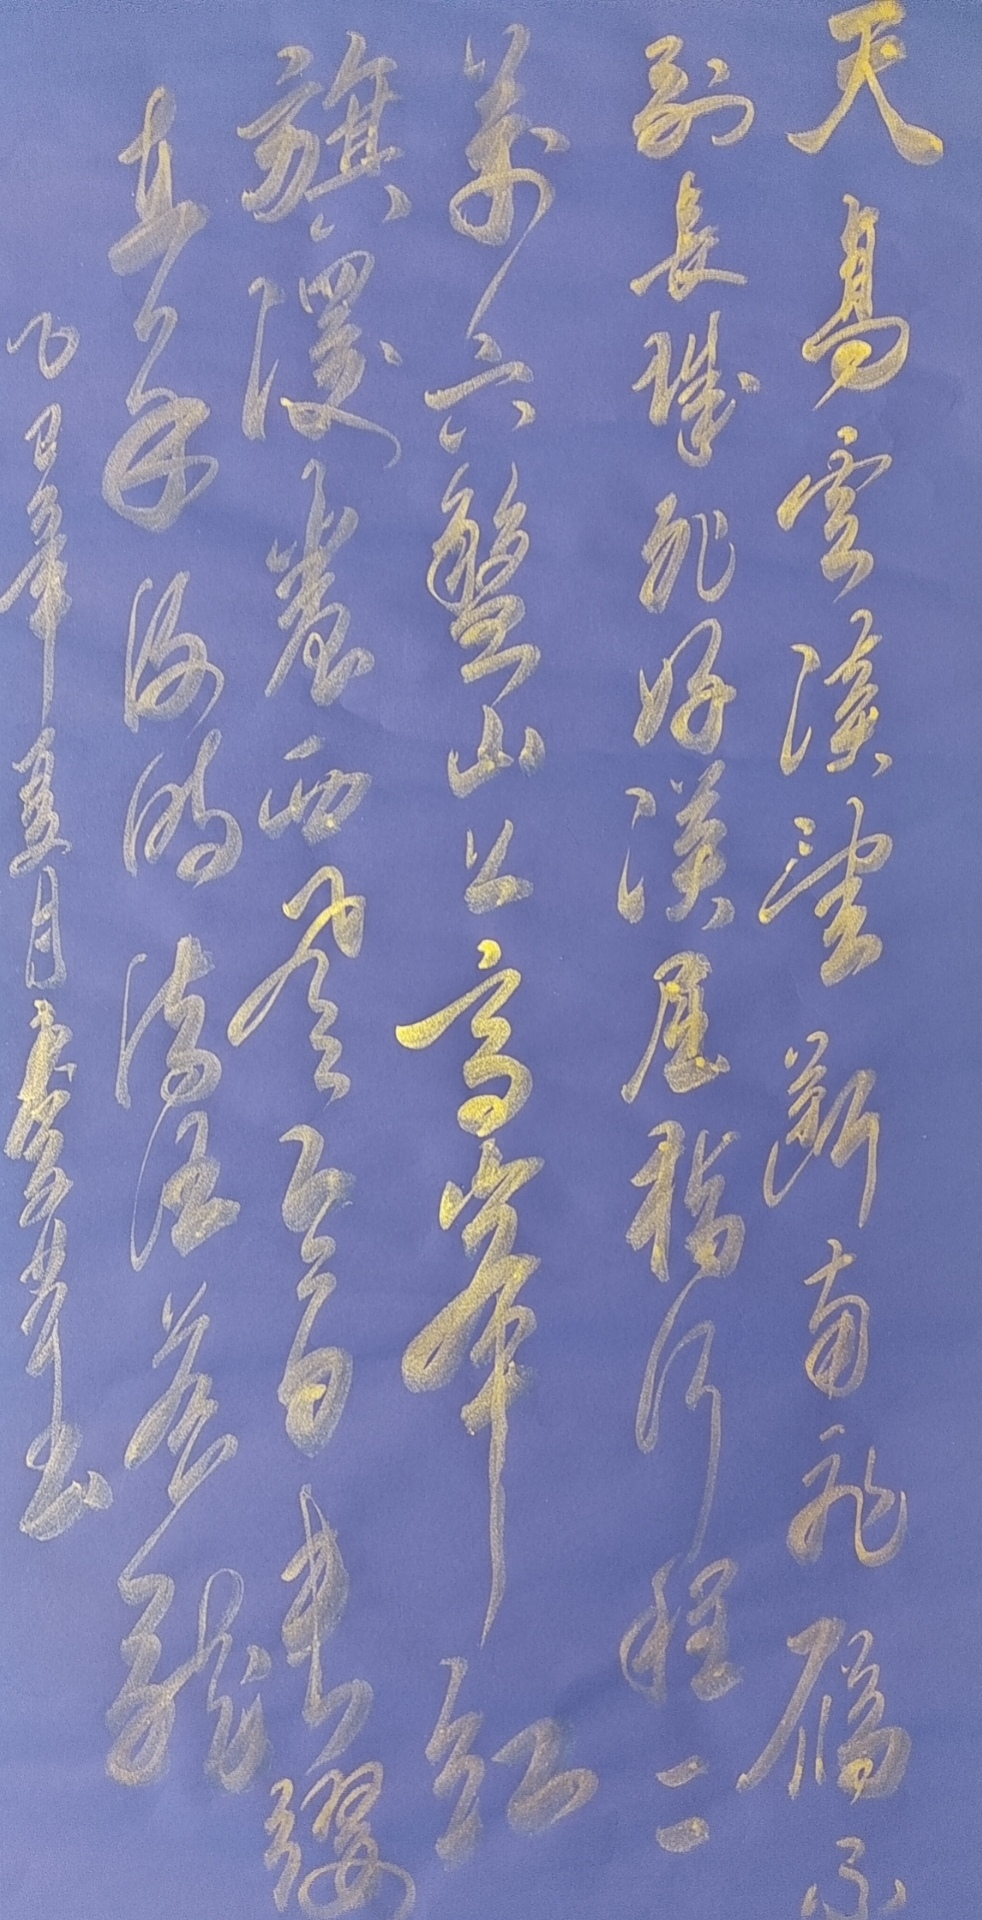 天高雲淡望斷南飛雁不
到長城非好漢屈指行程二
萬六盤山上高峰紅
旗漫卷西風今日長纓
在手何時縛住蒼龍
乙巳年夏月書